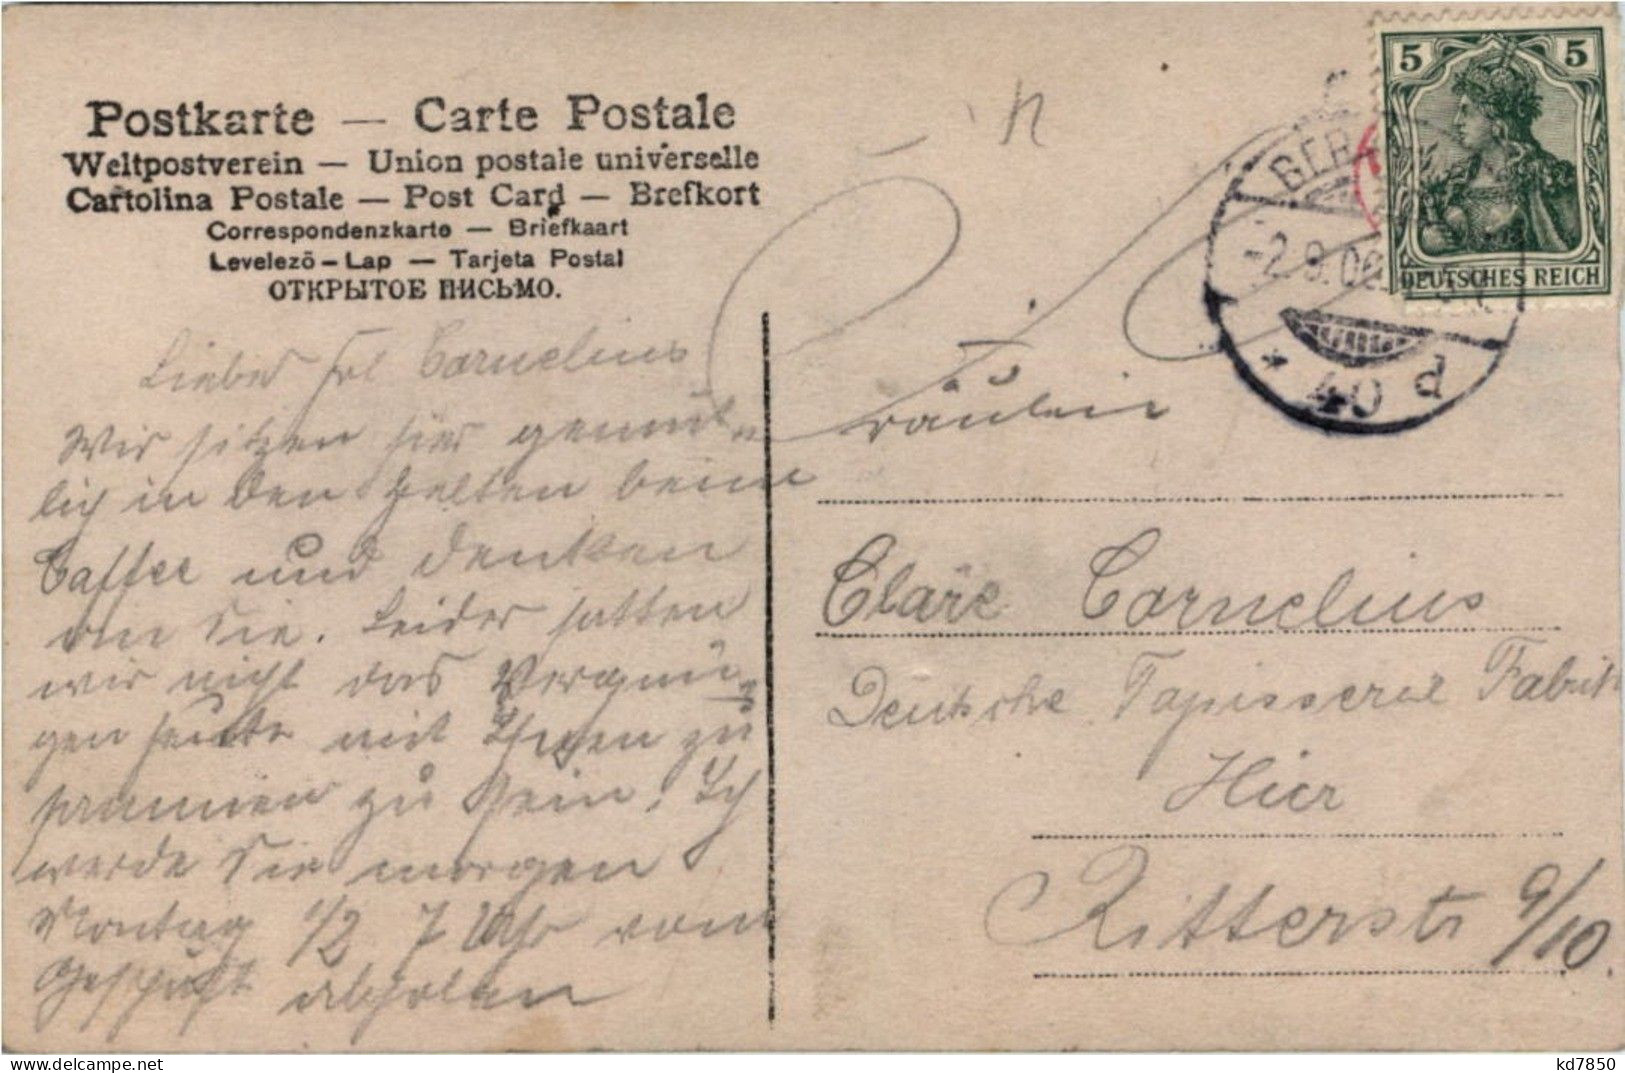 Postkarte — Carte Postale
Weltpostverein — Union postale universelle
Cartolina Postale — Post Card — Brefkort
Correspondenzkarte — Briefkaart
Levelezõ-Lap — Tarjeta Postal
ОТКРЫТОЕ ПИСЬМО.
Liebes Frl Cornelius
Wir sitzen hier gemüt-
lich in den Zelten beim
Caffee und denken
an Sie. Leider hatten
wir nicht das Vergnü-
gen heute mit Ihnen zu
zusammen zu sein. Ich
werde Sie morgen
Montag 1/2 7 Uhr vom
Geschäft abholen
5 5
DEUTSCHES REICH
BER
-2.9.06
* 40 d
Fräulein
Cläre Cornelius
Deutsche Tapisserie Fabrik
Hier
Ritterstr 9/10.
kd7850